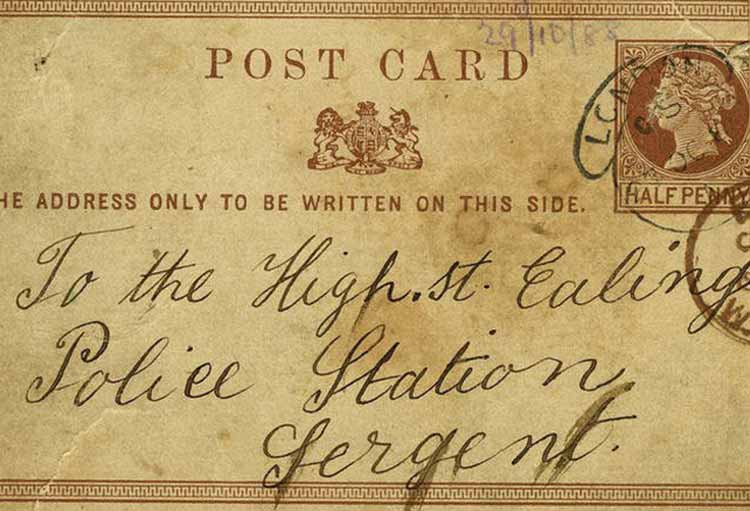 29/10/88
POST CARD
LONDON
HALF PENNY
HE ADDRESS ONLY TO BE WRITTEN ON THIS SIDE.
To the High.st. Ealing
Police Station
Sergent.